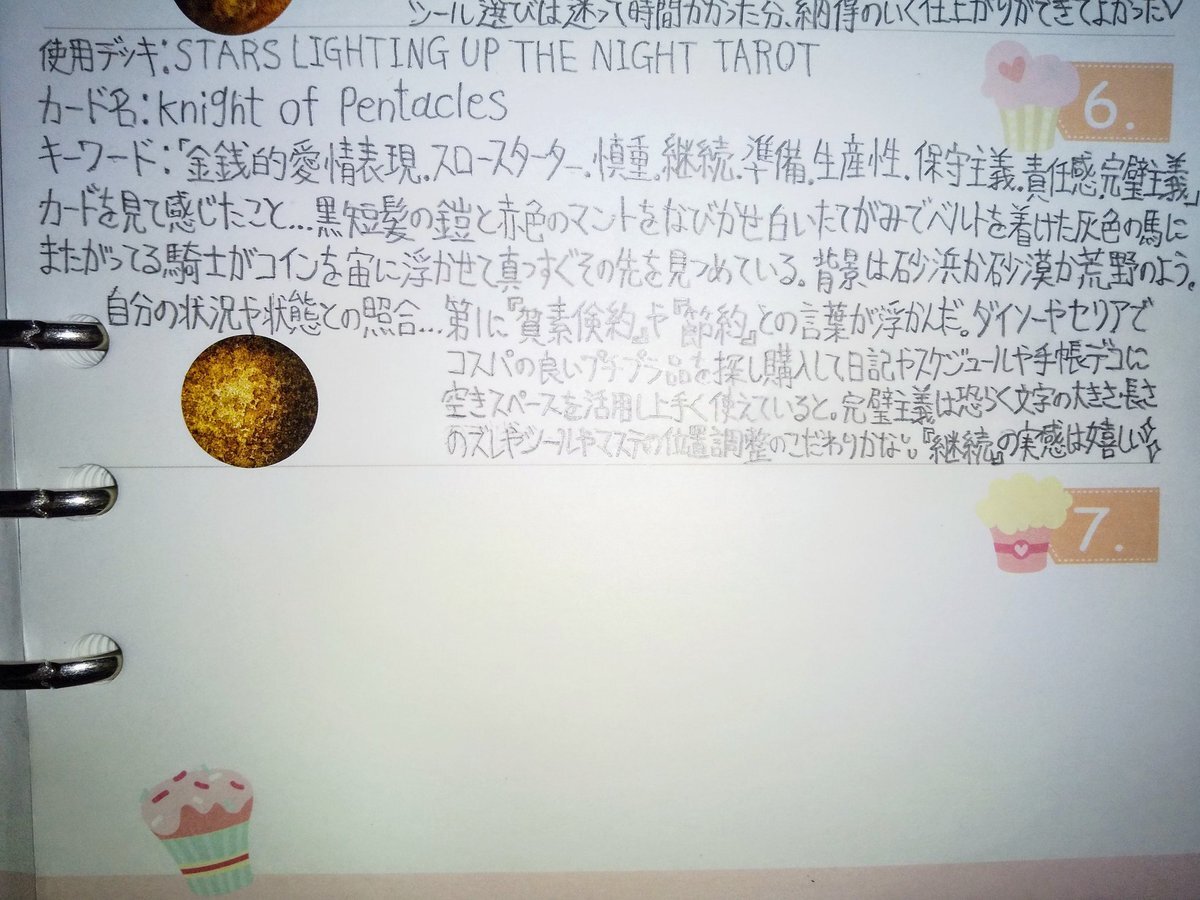 シール選びは迷って時間かかった分、納得のいく仕上がりができてよかった♡
使用デッキ:STARS LIGHTING UP THE NIGHT TAROT
カード名:Knight of Pentacles
6.
キーワード:「金銭的愛情表現.スロースターター.慎重.継続.準備.生産性.保守主義.責任感.完璧主義」
カードを見て感じたこと…黒短髪の鎧と赤色のマントをなびかせ白いたてがみでベルトを着けた灰色の馬に
またがってる騎士がコインを宙に浮かせて真っすぐその先を見つめている。背景は砂浜か砂漠か荒野のよう。
自分の状況や状態との照合…第1に『質素倹約』や『節約』との言葉が浮かんだ。ダイソーやセリアで
コスパの良いプチプラ品を探し購入して日記やスケジュールや手帳デコに
空きスペースを活用し上手く使えていると。完璧主義は恐らく文字の大きさ・長さ
のズレやシールやマステの位置調整のこだわりかな。『継続』の実感は嬉しい
7.